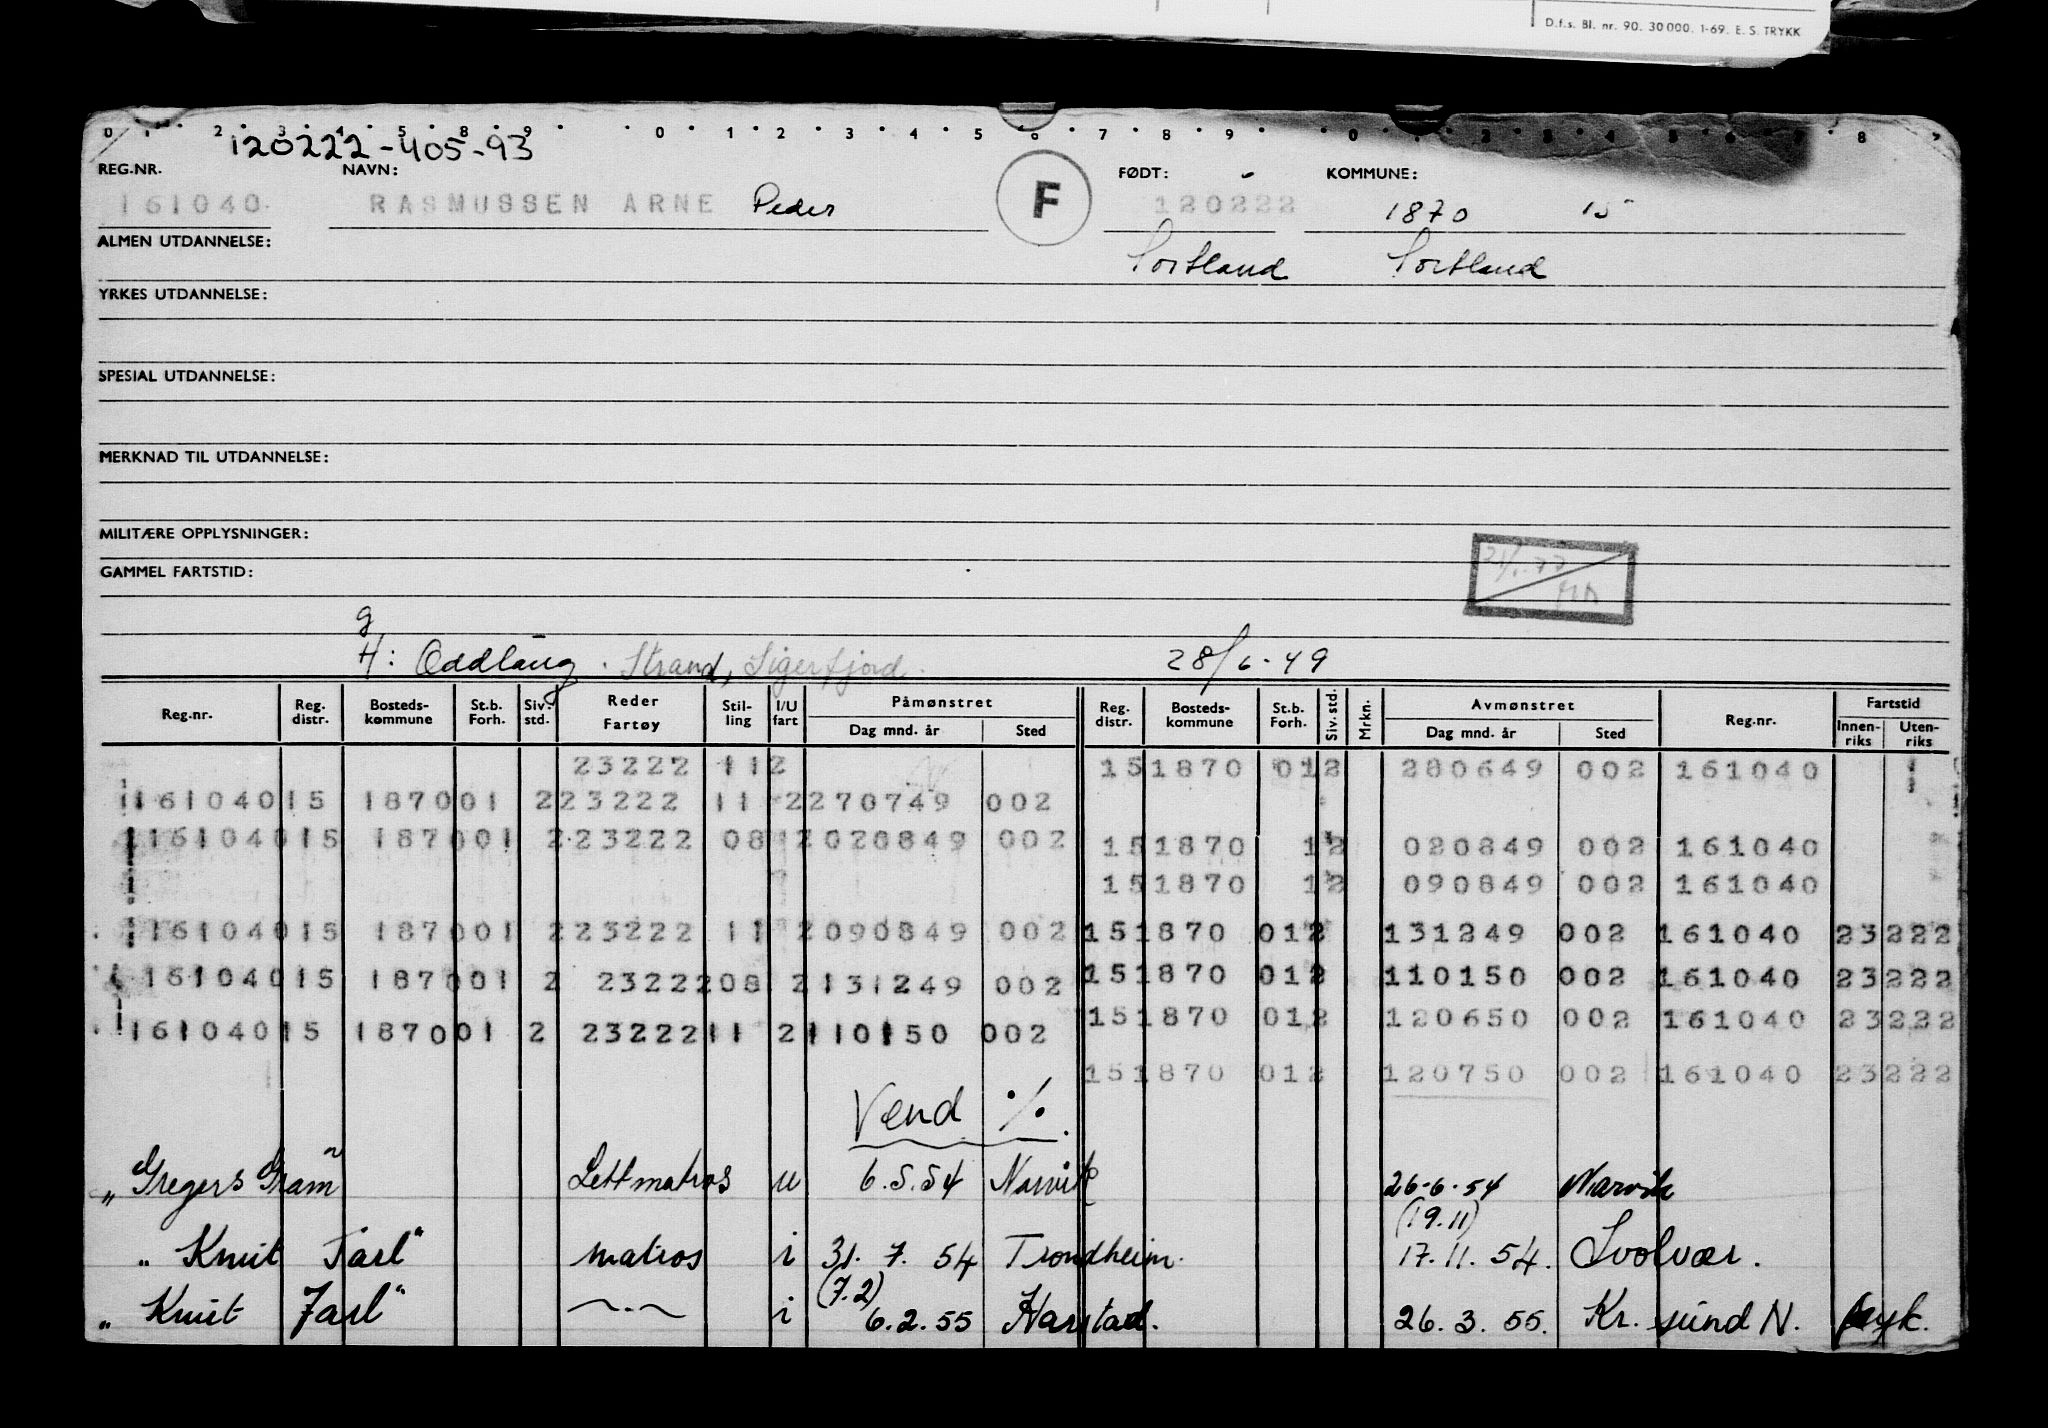 D.f.s. Bl. nr. 90. 30 000. 1-69. E. S. TRYKK
120222-405-93
REG.NR. NAVN: FØDT: KOMMUNE:
161040 RASMUSSEN ARNE Peder F 120222 1870 15
ALMEN UTDANNELSE: Sortland Sortland
YRKES UTDANNELSE:
SPESIAL UTDANNELSE:
MERKNAD TIL UTDANNELSE:
MILITÆRE OPPLYSNINGER:
GAMMEL FARTSTID:
g
H: Oddlaug. Strand, Sigerfjord. 28/6-49
Reg.nr. Reg. distr. Bosteds-kommune St.b. Forh. Siv. std. Reder Fartøy Stil-ling I/U fart Påmønstret Dag mnd. år Sted Reg. distr. Bosteds-kommune St.b. Forh. Siv. std. Mrkn. Avmønstret Dag mnd. år Sted Reg.nr. Fartstid Innen-riks Uten-riks
23222 112 151870 012 280649 002 161040
161040 15 1870 01 2 23222 11 2 270749 002
161040 15 1870 01 2 23222 08 2 020849 002 151870 12 020849 002 161040
151870 12 090849 002 161040
161040 15 1870 01 2 23222 11 2 090849 002 151870 012 131249 002 161040 23222
161040 15 1870 01 2 23222 08 2 131249 002 151870 012 110150 002 161040 23222
161040 15 1870 01 2 23222 11 2 110150 002 151870 012 120650 002 161040 23222
151870 012 120750 002 161040 23222
Vend ./.
"Gregers Gram Lettmatros u 6.5.54 Narvik 26-6-54 Narvik
(19.11)
"Knut Jarl" matros i 31.7.54 Trondheim. 17.11.54. Svolvær.
(7.2)
"Knut Jarl" ~.~ i 6.2.55 Harstad. 26.3.55. Kr.sund N. syk.